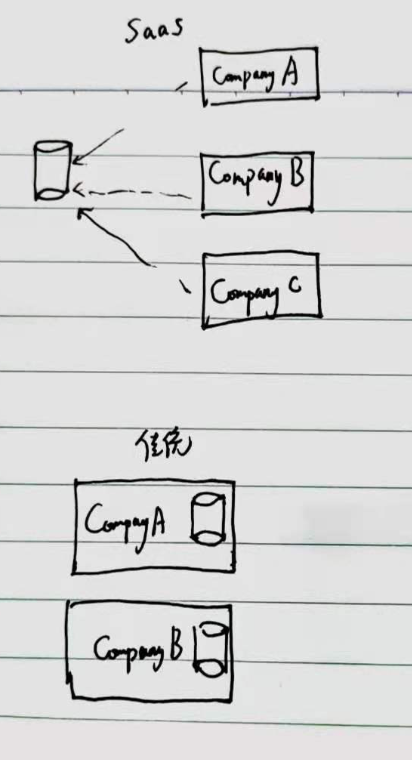 SaaS
Company A
Company B
Company C
传统
Compay A
Company B